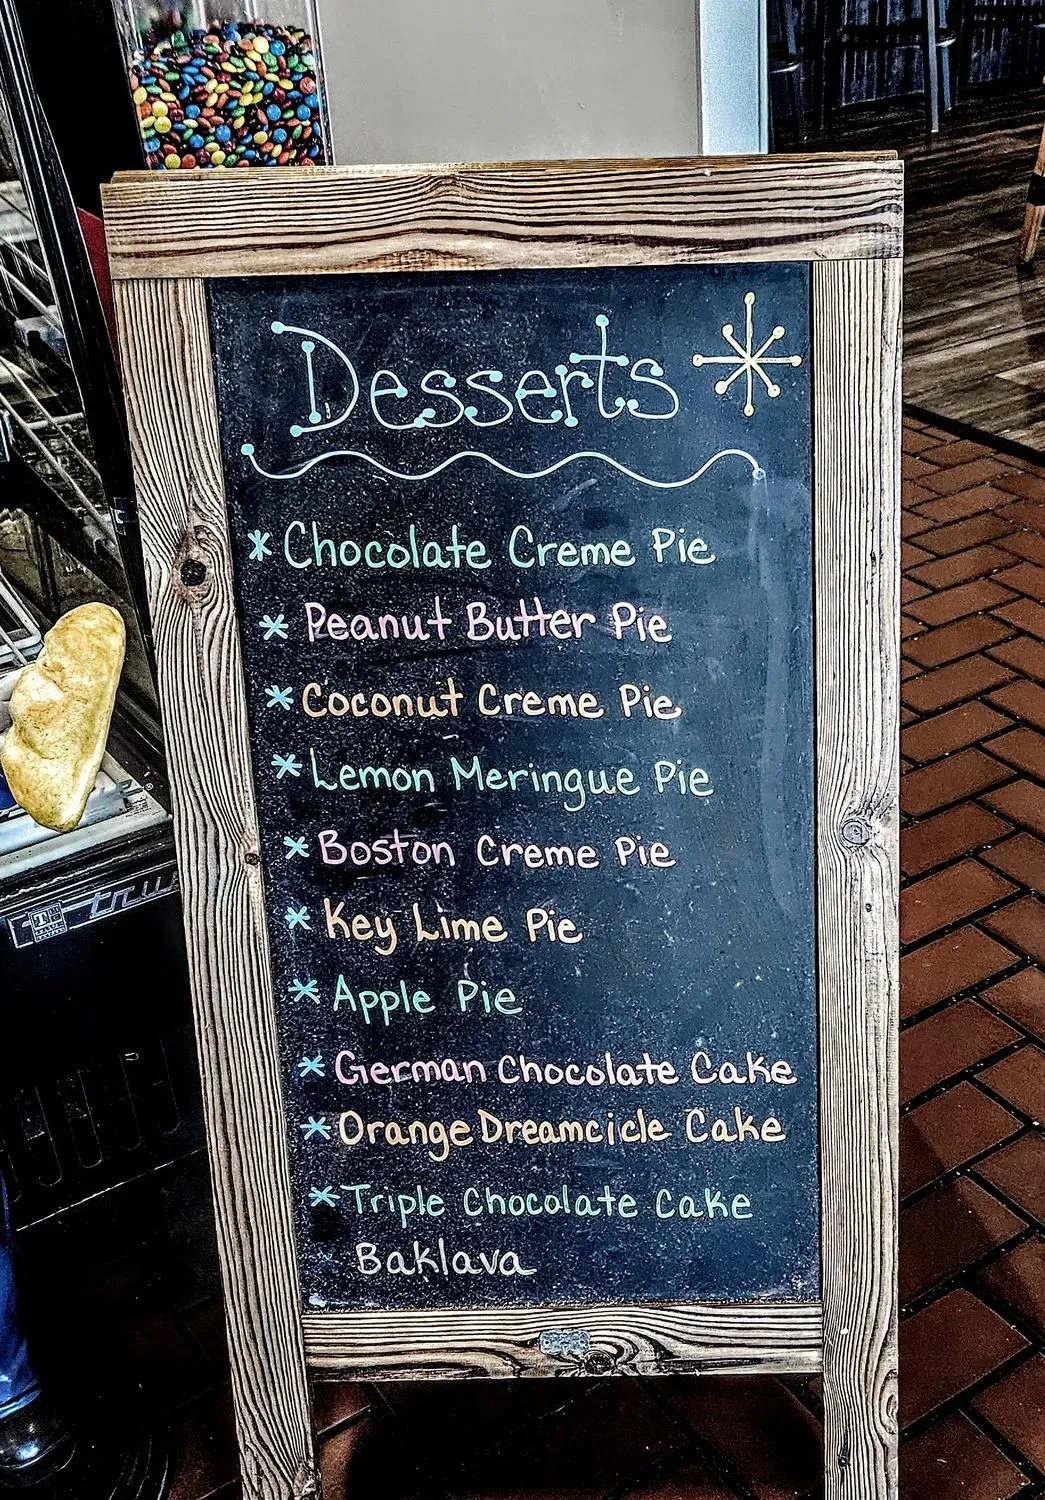 Desserts
* Chocolate Creme Pie
* Peanut Butter Pie
* Coconut Creme Pie
* Lemon Meringue Pie
* Boston Creme Pie
* Key Lime Pie
* Apple Pie
* German Chocolate Cake
* Orange Dreamcicle Cake
* Triple Chocolate Cake
Baklava